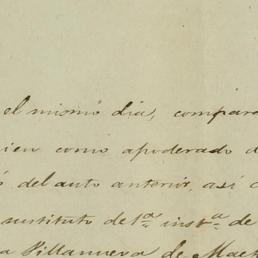 el mismo dia, compare
ien como apoderado d
ó del auto anterior, así c
sustituto de 1ª instª de
a Villanueva de